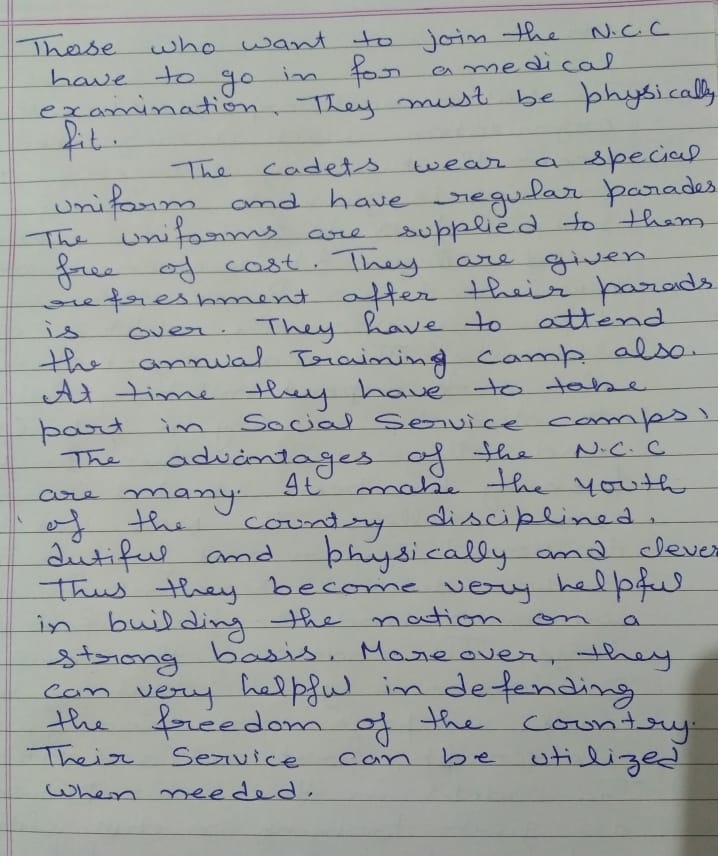 Those who want to join the N.C.C
have to go in for a medical
examination. They must be physically
fit.
The cadets wear a special
uniform and have regular parades
The uniforms are supplied to them
free of cost. They are given
refreshment after their parads
is over. They have to attend
the annual Training camp also.
At time they have to take
part in Social Service camps,
The advantages of the N.C.C
are many. It make the youth
of the country disciplined,
dutiful and physically and clever
Thus they become very helpful
in building the nation on a
strong basis. Moreover, they
can very helpful in defending
the freedom of the country.
Their Service can be utilized
when needed.